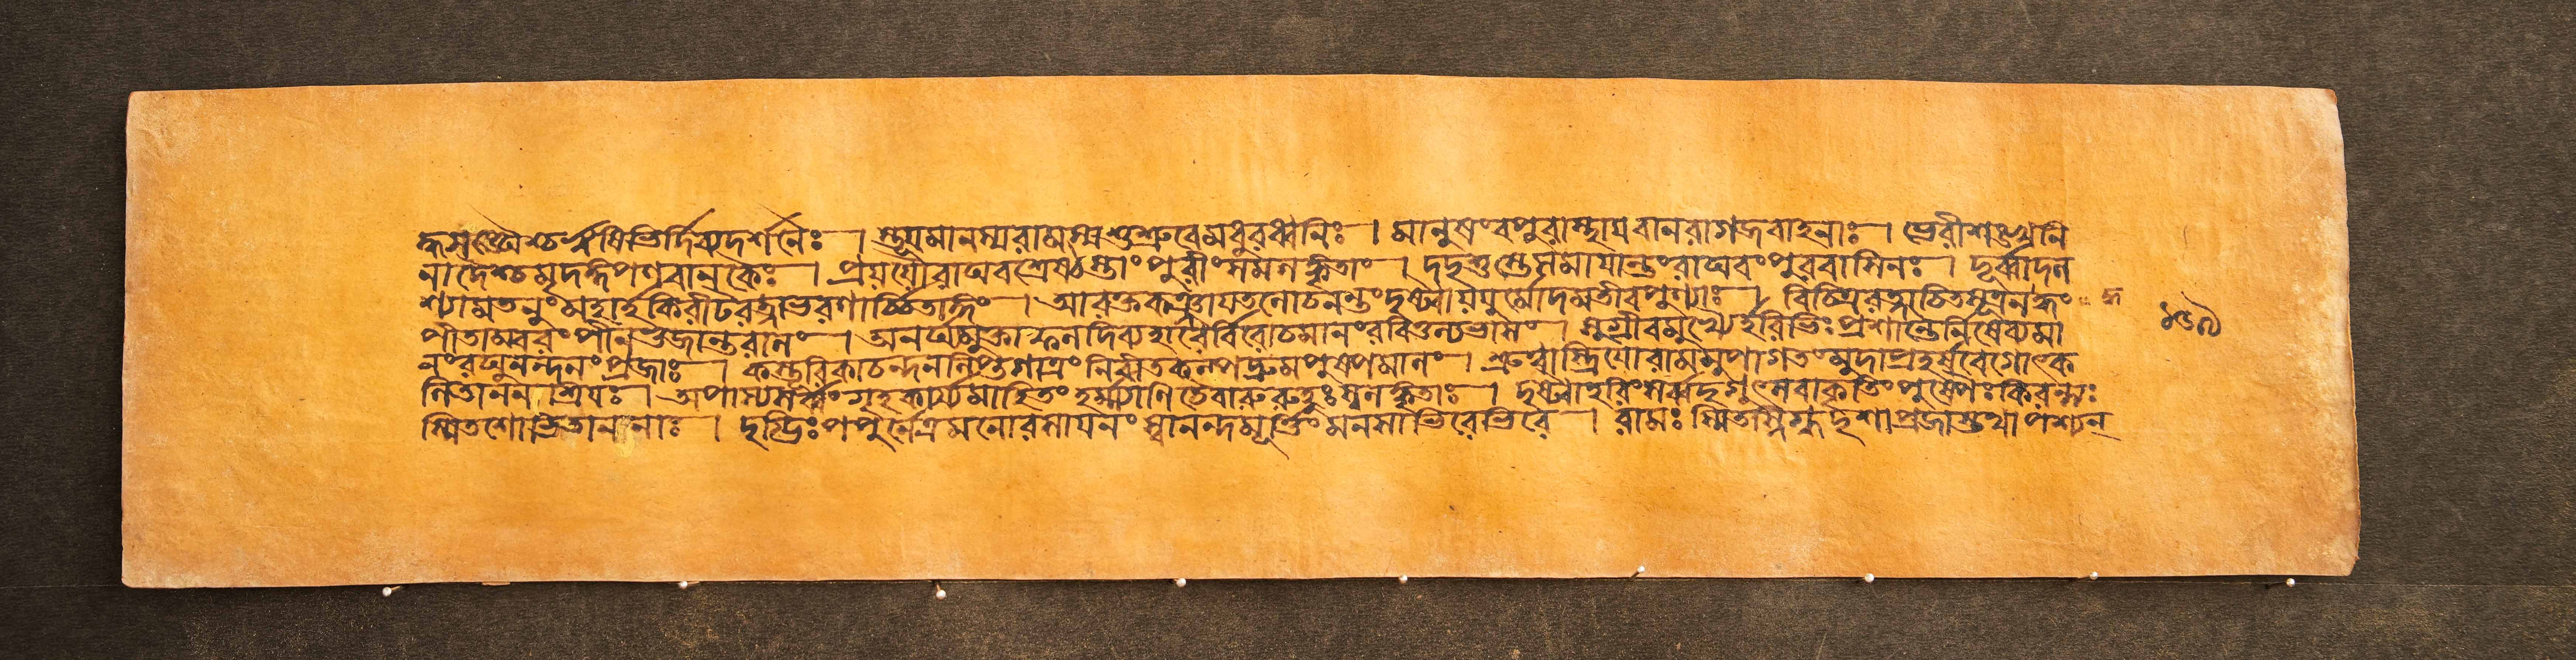 ঙ্ঘসঙ্ঘৈশ্চ ঋষিভির্দিব্যদর্শনৈঃ । স্তূয়মানস্য রামস্য শুশ্রুবে মধুরধ্বনিঃ । মানুষং বপুরাস্থায় বানরাগজবাহনাঃ । ভেরীশঙ্খনি
নাদৈশ্চ মৃদঙ্গপণবানকৈঃ । প্রয়যৌ রাঘবশ্রেষ্ঠস্তাং পুরীং সমলঙ্কৃতাং । দদৃশুস্তে সমায়ান্তং রাঘবং পুরবাসিনঃ । দূর্ব্বাদল
শ্যামতনুং মহার্হকিরীটরত্নাভরণাঞ্চিতাঙ্গং । আরক্তকঞ্জায়তলোচনান্তং দৃষ্ট্বা যযুর্মোদমতীব পুণ্যাঃ । বিচিত্ররত্নাঞ্চিতসূত্রনদ্ধং
পীতাম্বরং পীনভুজান্তরালং । অনর্ঘ্যমুক্তাফলদিব্যহারৈর্বিরোচমানং রবিতুল্যভাসং । সুগ্রীবমুখ্যৈর্হরিভিঃ প্রশান্তৈর্নিষেব্যমা
নং রঘুনন্দনং প্রজাঃ । কস্তূরিকাচন্দনলিপ্তগাত্রং নিবীতকল্পদ্রুমপুষ্পমালং । শ্রুত্বা স্ত্রিয়ো রামমুপাগতং মুদা প্রহর্ষবেগোৎক
লিতাননশ্রিয়ঃ । অপাস্য সর্ব্বং গৃহকার্য্যমাহিতং হর্ম্ম্যাণি চৈবারুরুহুঃ স্বলঙ্কৃতাঃ । দৃষ্ট্বা হরিং সর্ব্বদৃগুৎসবাকৃতিং পুষ্পৈঃ কিরন্ত্যঃ
স্মিতশোভিতাননাঃ । দৃগ্ভিঃ পপুর্নেত্রমনোরসায়নং স্বানন্দমূর্ত্তিং মনসাভিরেভিরে । রামঃ স্মিতস্নিগ্ধদৃশা প্রজাস্তথাপশ্যন্